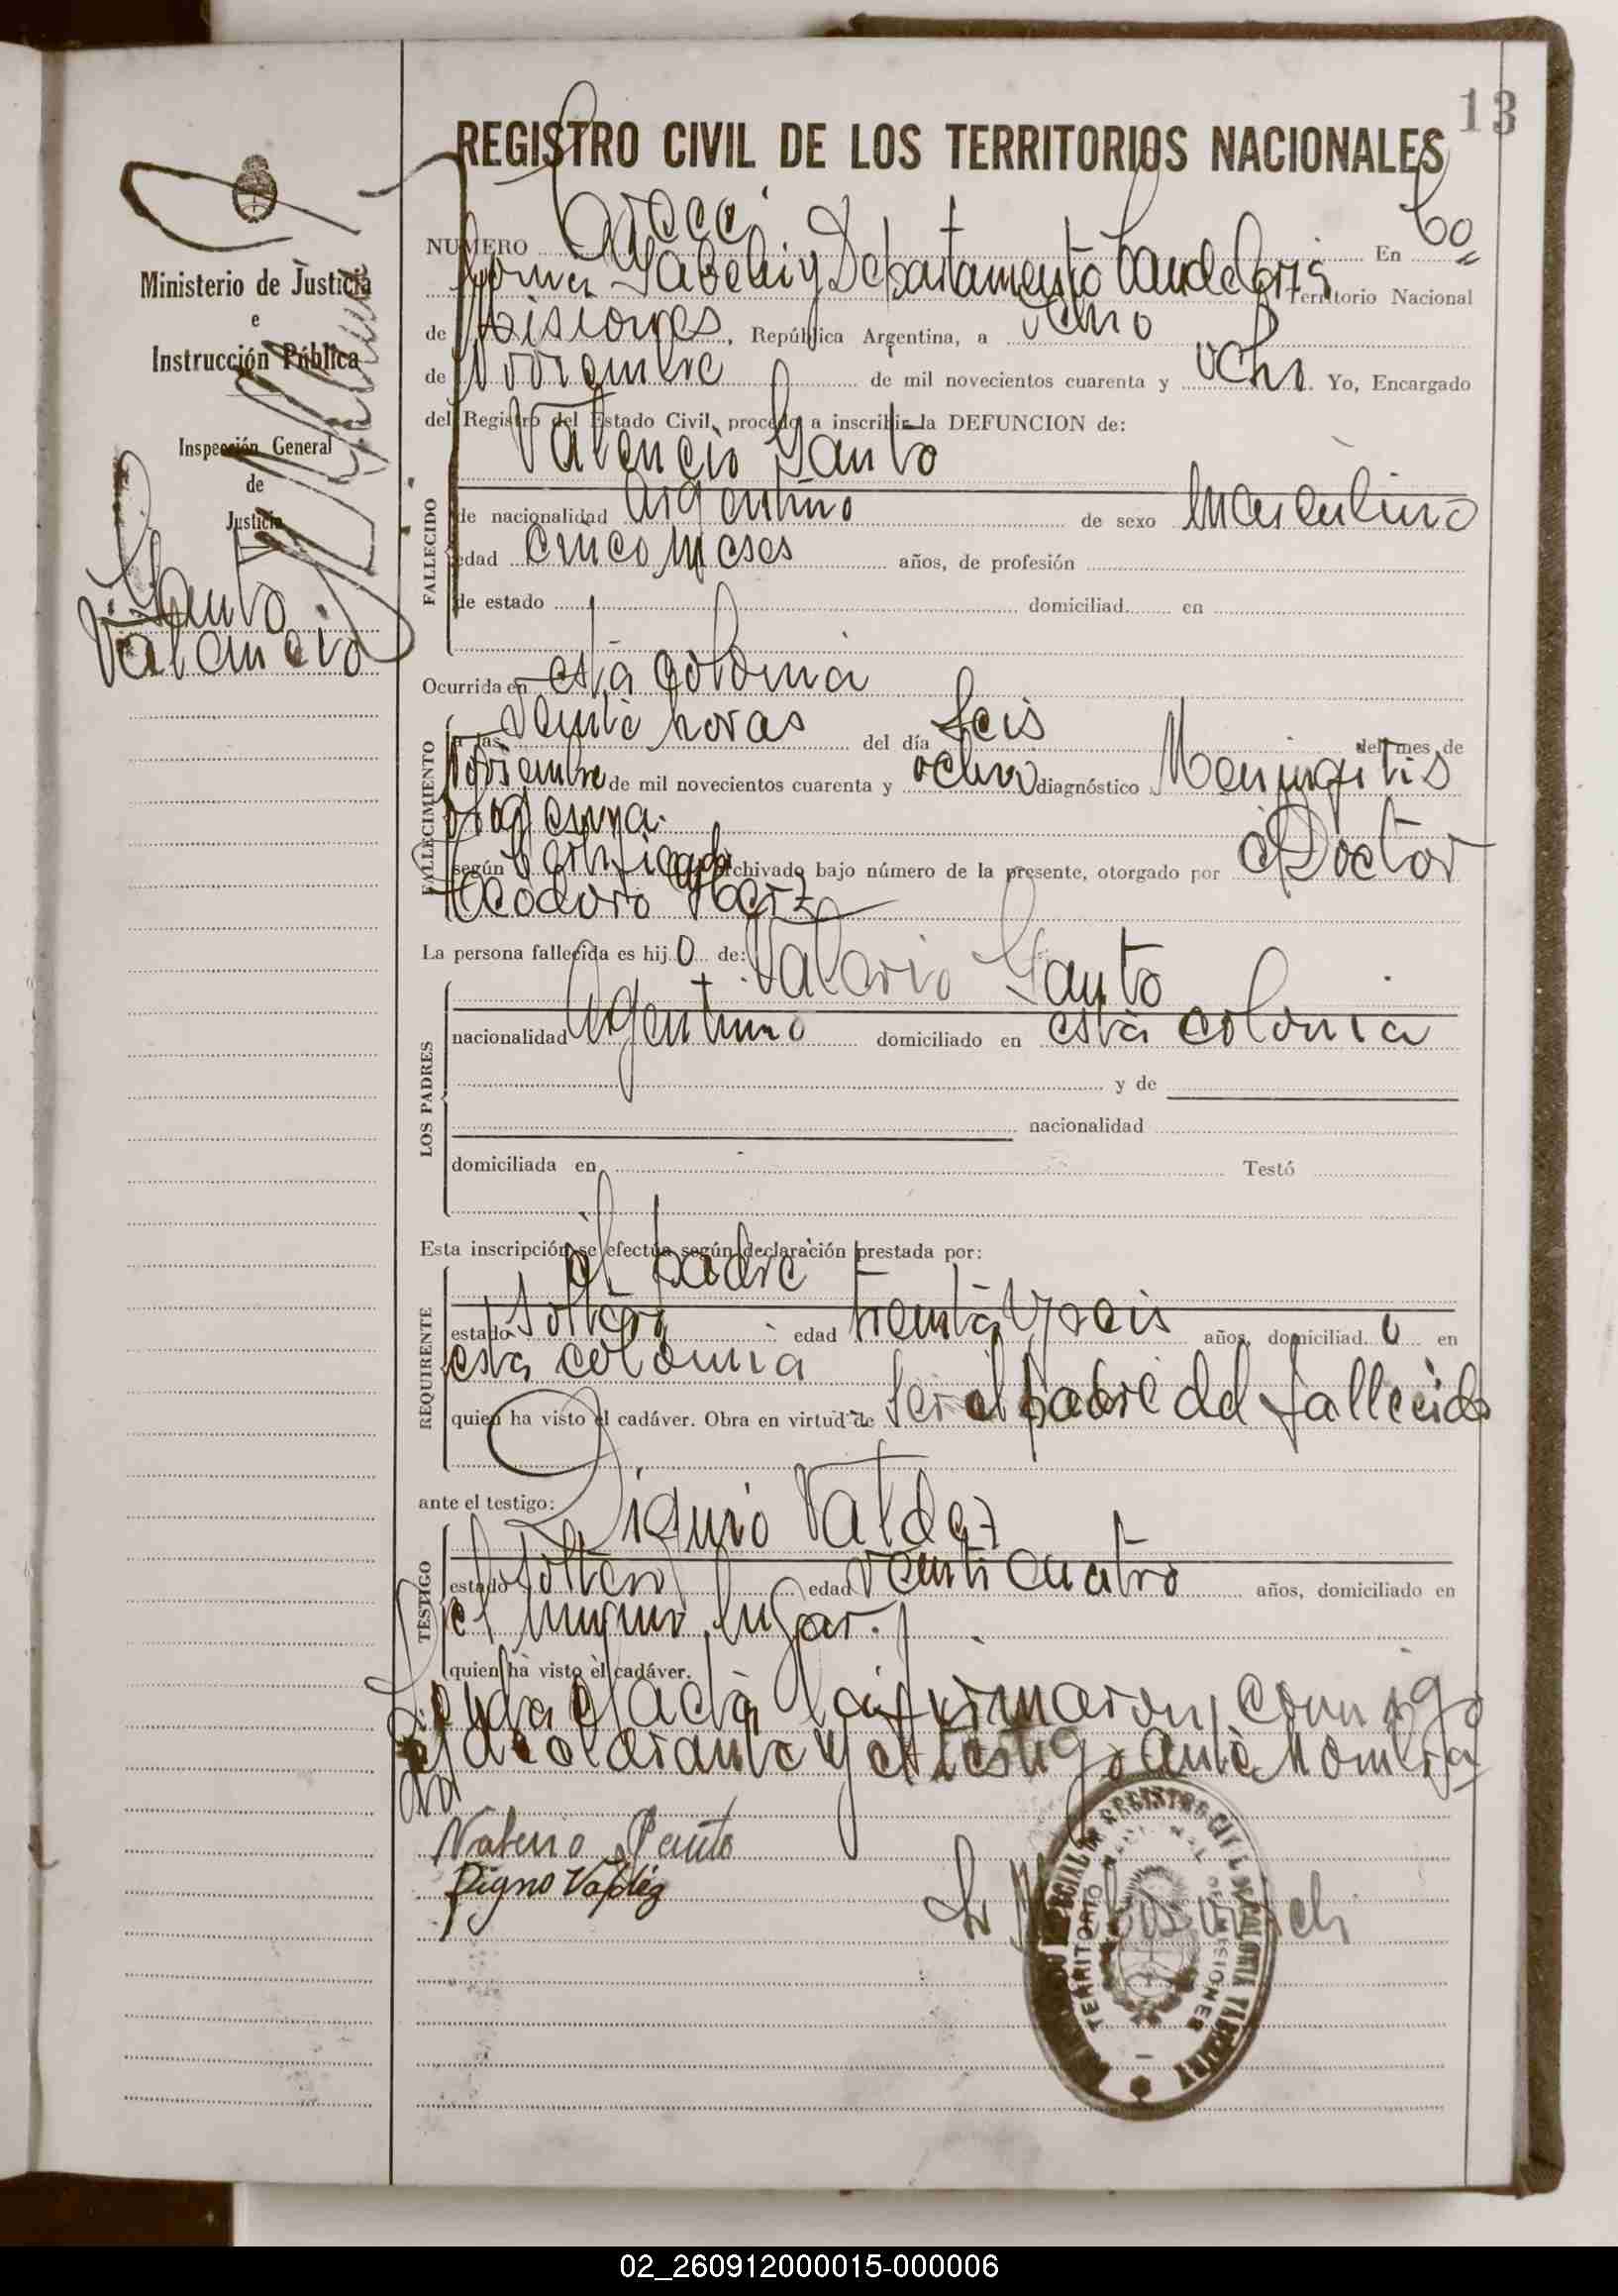 13
REGISTRO CIVIL DE LOS TERRITORIOS NACIONALES
NUMERO Trece En Co=
lonia Yabebiry Departamento Candelaria Territorio Nacional
de Misiones, República Argentina, a ocho
de Noviembre de mil novecientos cuarenta y ocho. Yo, Encargado
del Registro del Estado Civil, procedo a inscribir la DEFUNCION de:
Valencio Santo
FALLECIDO
de nacionalidad Argentino de sexo masculino
edad cinco meses años, de profesión
de estado domiciliad en
Ocurrida en esta colonia
FALLECIMIENTO
a las veinte horas del día seis del mes de
Noviembre de mil novecientos cuarenta y ocho diagnóstico Meningitis
según Certificado archivado bajo número de la presente, otorgado por el Doctor
Teodoro
La persona fallecida es hijo de: Valerio Santo
LOS PADRES
nacionalidad Argentino domiciliado en esta colonia
y de
nacionalidad
domiciliada en Testó
Esta inscripción se efectúa según declaración prestada por:
el padre
REQUIRENTE
estado soltero edad treinta y seis años, domiciliado en
esta colonia
quien ha visto el cadáver. Obra en virtud de ser el padre del fallecido
ante el testigo: Digno Valdez
TESTIGO
estado soltero edad veinticuatro años, domiciliado en
el mismo lugar.
quien ha visto el cadáver.
Leyda el acta la firmaron conmigo
el declarante y el testigo ante nombra
do
Valerio Santo
Digno Valdez
Ministerio de Justicia
e
Instrucción Pública
Inspección General
de
Justicia
Santo
Valencio
REGISTRO CIVIL
TERRITORIO NACIONAL DE MISIONES
02_260912000015-000006